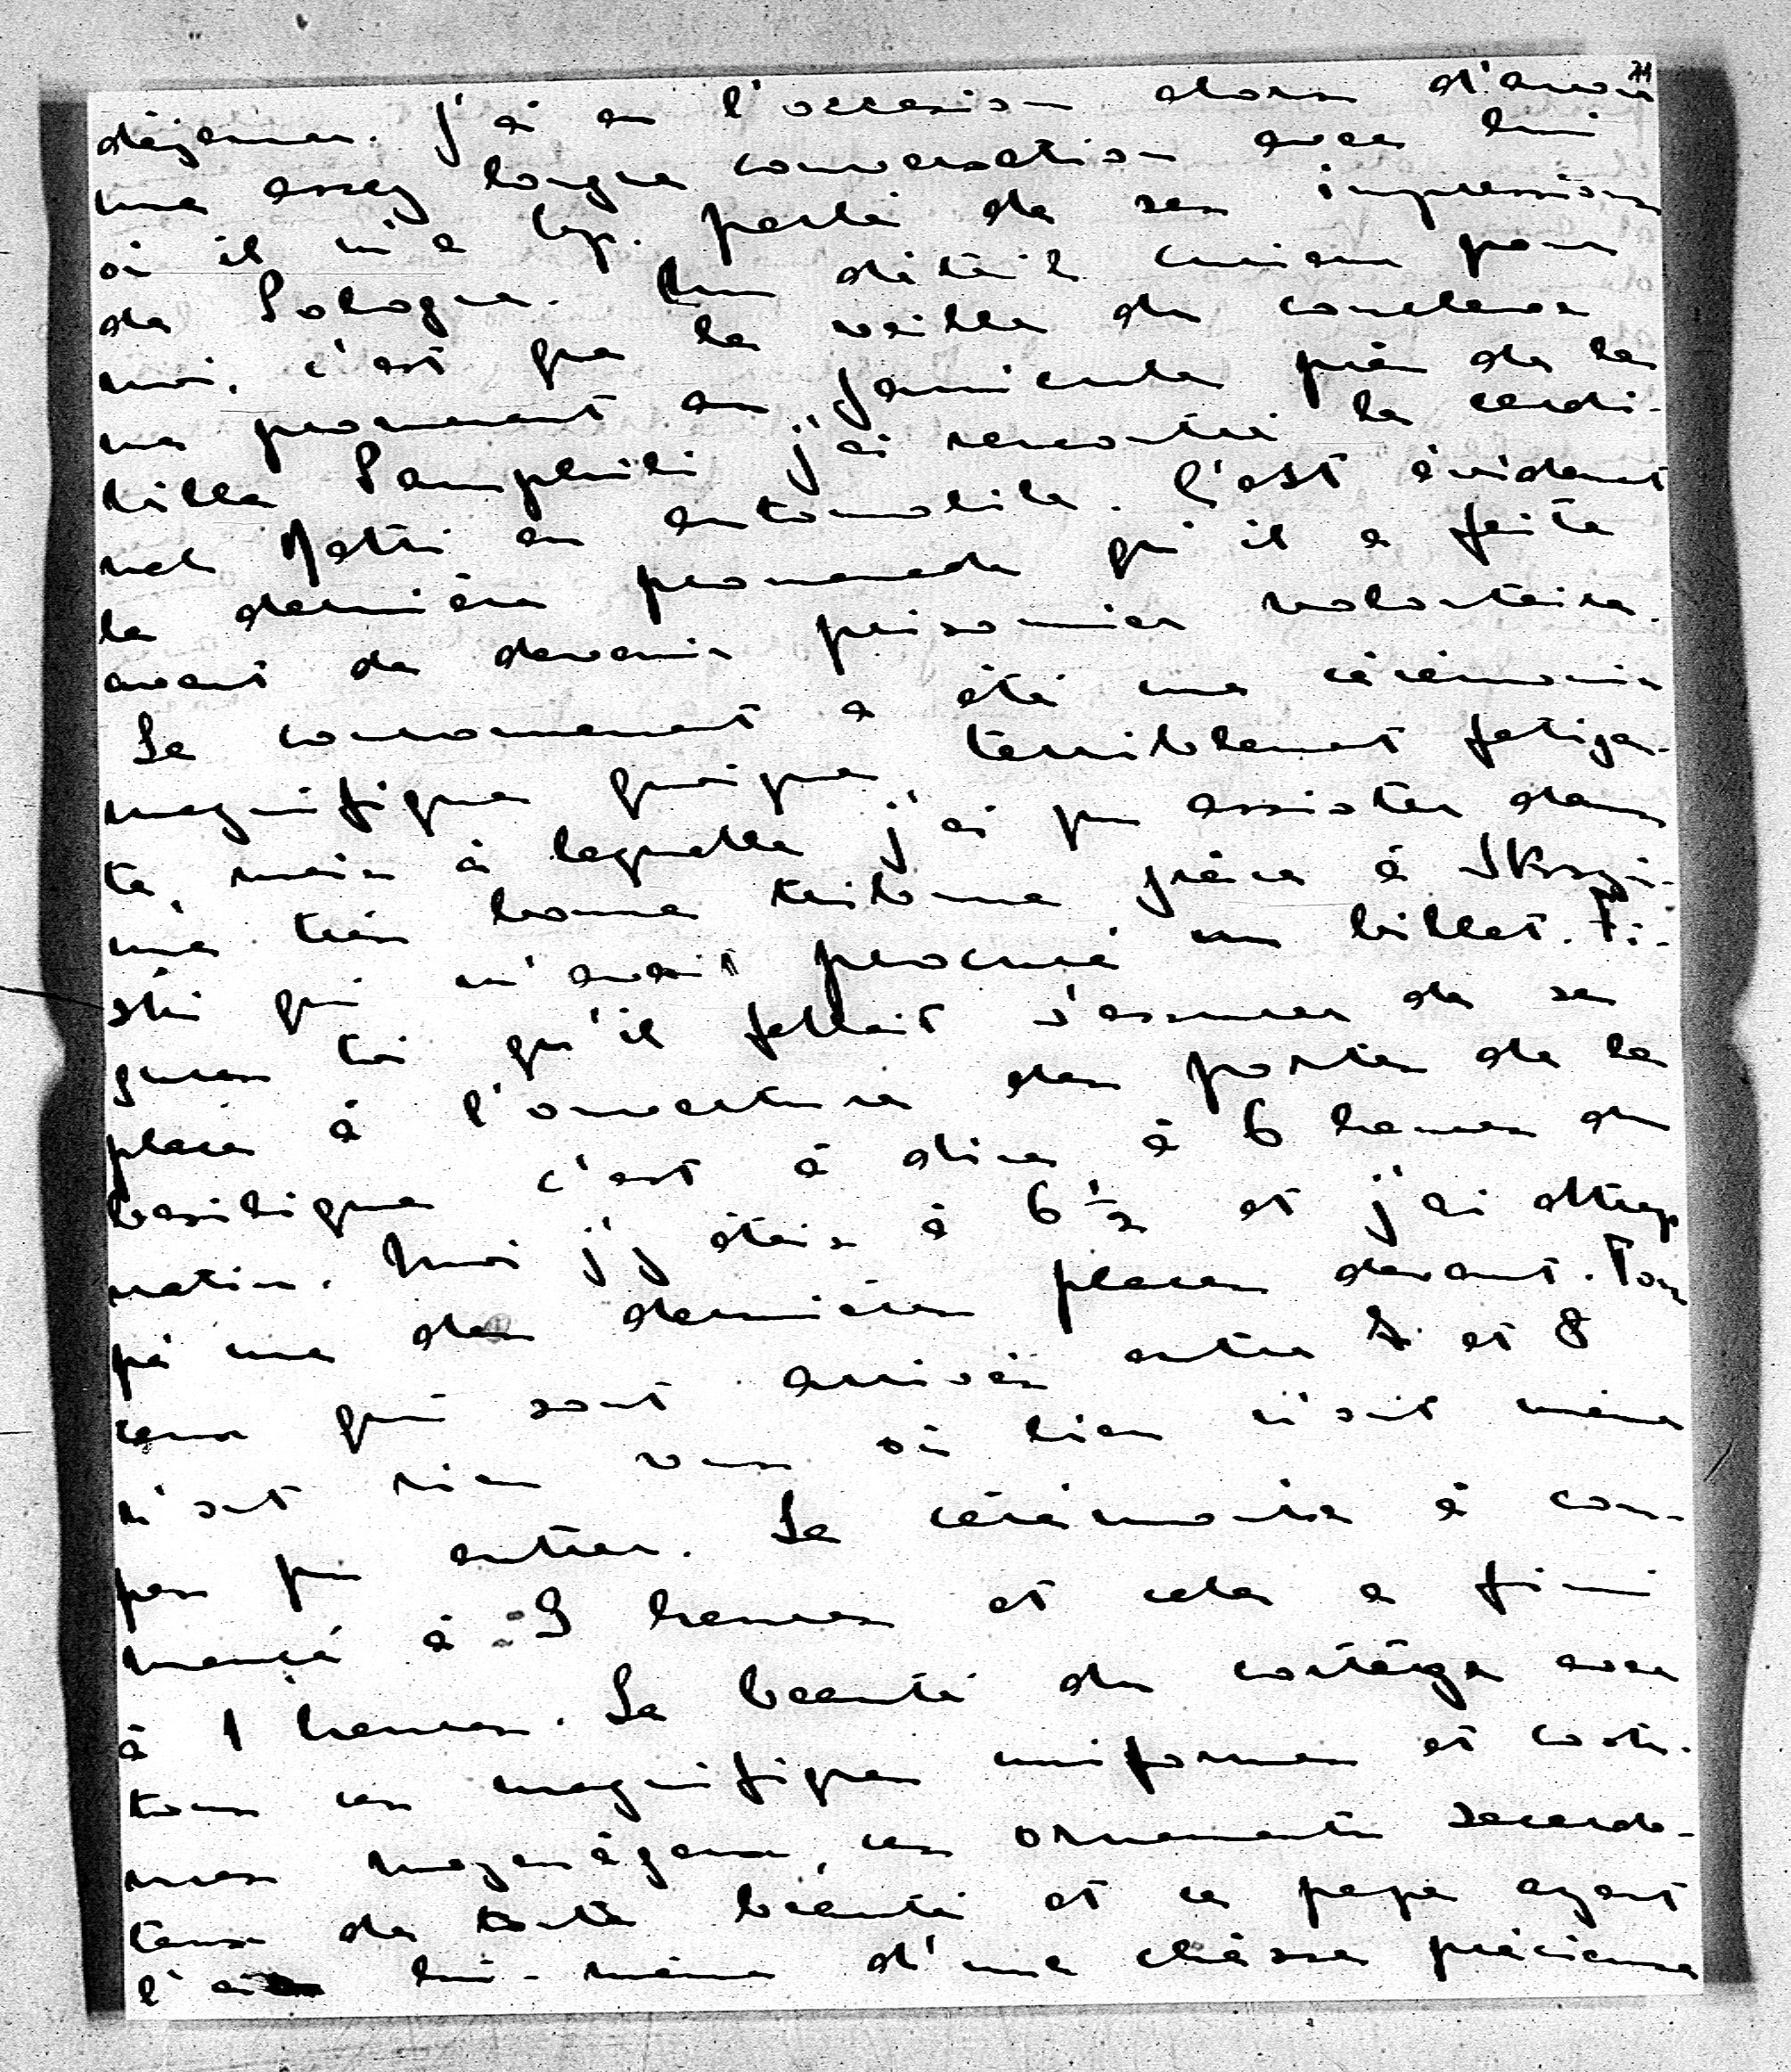 71
déjeuner. J'ai eu l'occasion alors d'avoir
une assez longue conversation avec lui
où il m'a bcp. parlé de ses impressions
de Pologne. Un détail curieux pour
moi, c'est que la veille du conclave
me promenant au Janicule près de la
villa Pamphili j'ai rencontré le cardi-
nal Ratti en automobile. C'est évidemt
la dernière promenade qu'il a faite
avant de devenir prisonnier volontaire.
Le couronnement a été une cérémonie
magnifique quoique terriblement fatigan-
te, mais à laquelle j'ai pu assister dans
une très bonne tribune grâce à Skrzyń-
ski qui m'avait procuré un billet. Fi-
gures toi qu'il fallait s'assurer de sa
place à l'ouverture des portes de la
basilique c'est à dire à 6 heures du
matin. Moi j'y étais à 6 1/2 et j'ai attrap
pé une des dernières places devant. Tous
ceux qui sont arrivés entre 7 et 8
n'ont rien vus où bien n'ont même
pas pu entrer. La cérémonie à com-
mencé à 9 heures et cela a fini
à 1 heures. La beauté du cortège avec
tous ces magnifiques uniformes et costu-
mes moyenâgeux, ces ornements sacerdo-
taux de toute beauté et ce pape ayant
l'air lui-même d'une châsse précieuse